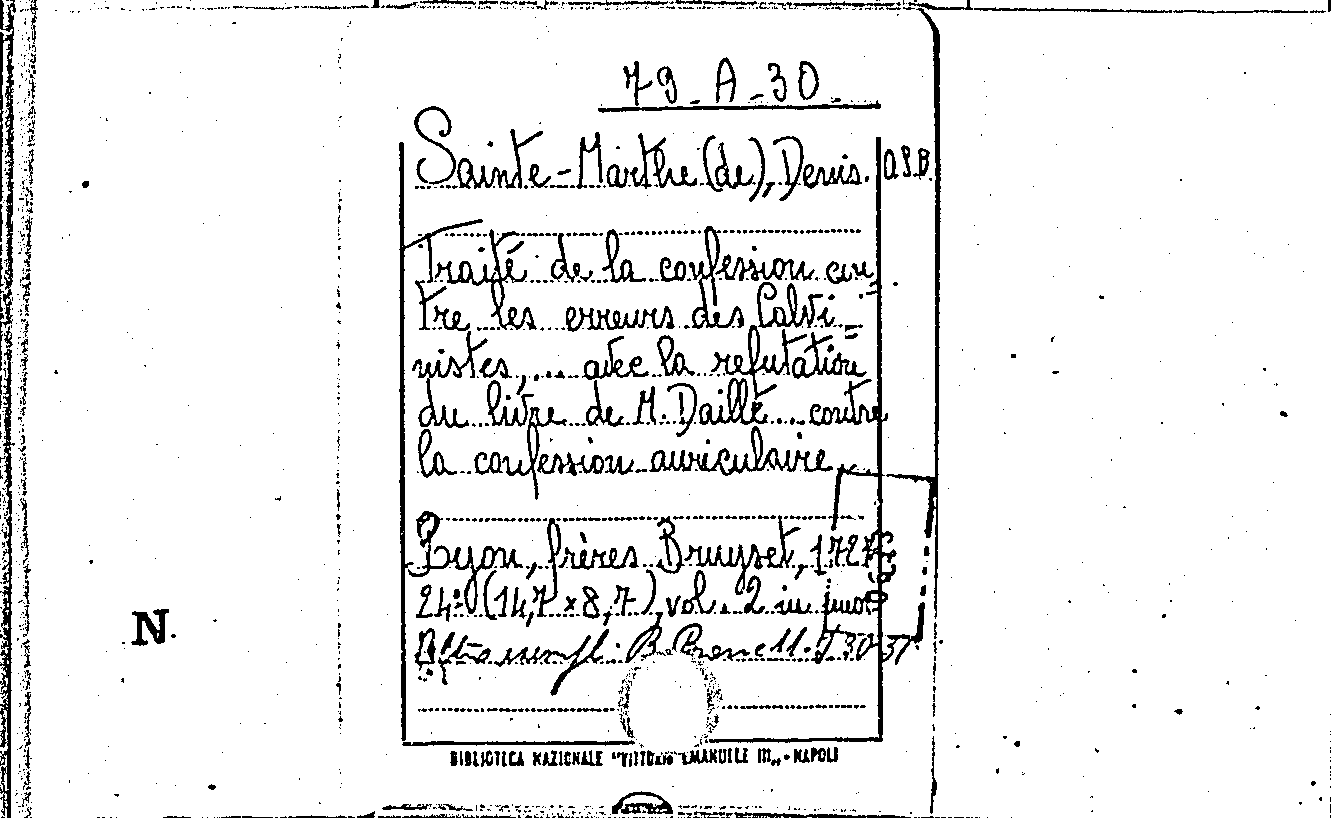 79-A-30
Sainte-Marthe (de), Denis. O.S.B.
Traité de la confession con=
tre les erreurs des Calvi=
nistes,... avec la refutation
du livre de M. Daillé... contre
la confession auriculaire.
Lyon, frères Bruyset, 1727
24º (14,7 x 8,7), vol. 2 in
Altro esempl. B. 30-31
N.
BIBLIOTECA NAZIONALE "VITTORIO EMANUELE III„ - NAPOLI